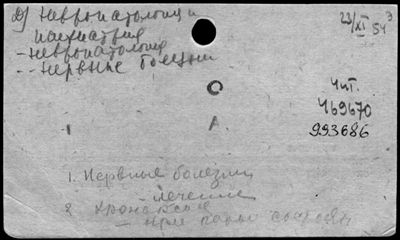 2) Невропатология и
психиатрия
- невропатология
-- нервные болезни
23/XI 54
Чит.
469670
993686
1. Нервные болезни
- лечение
2. Хронаксия
- при